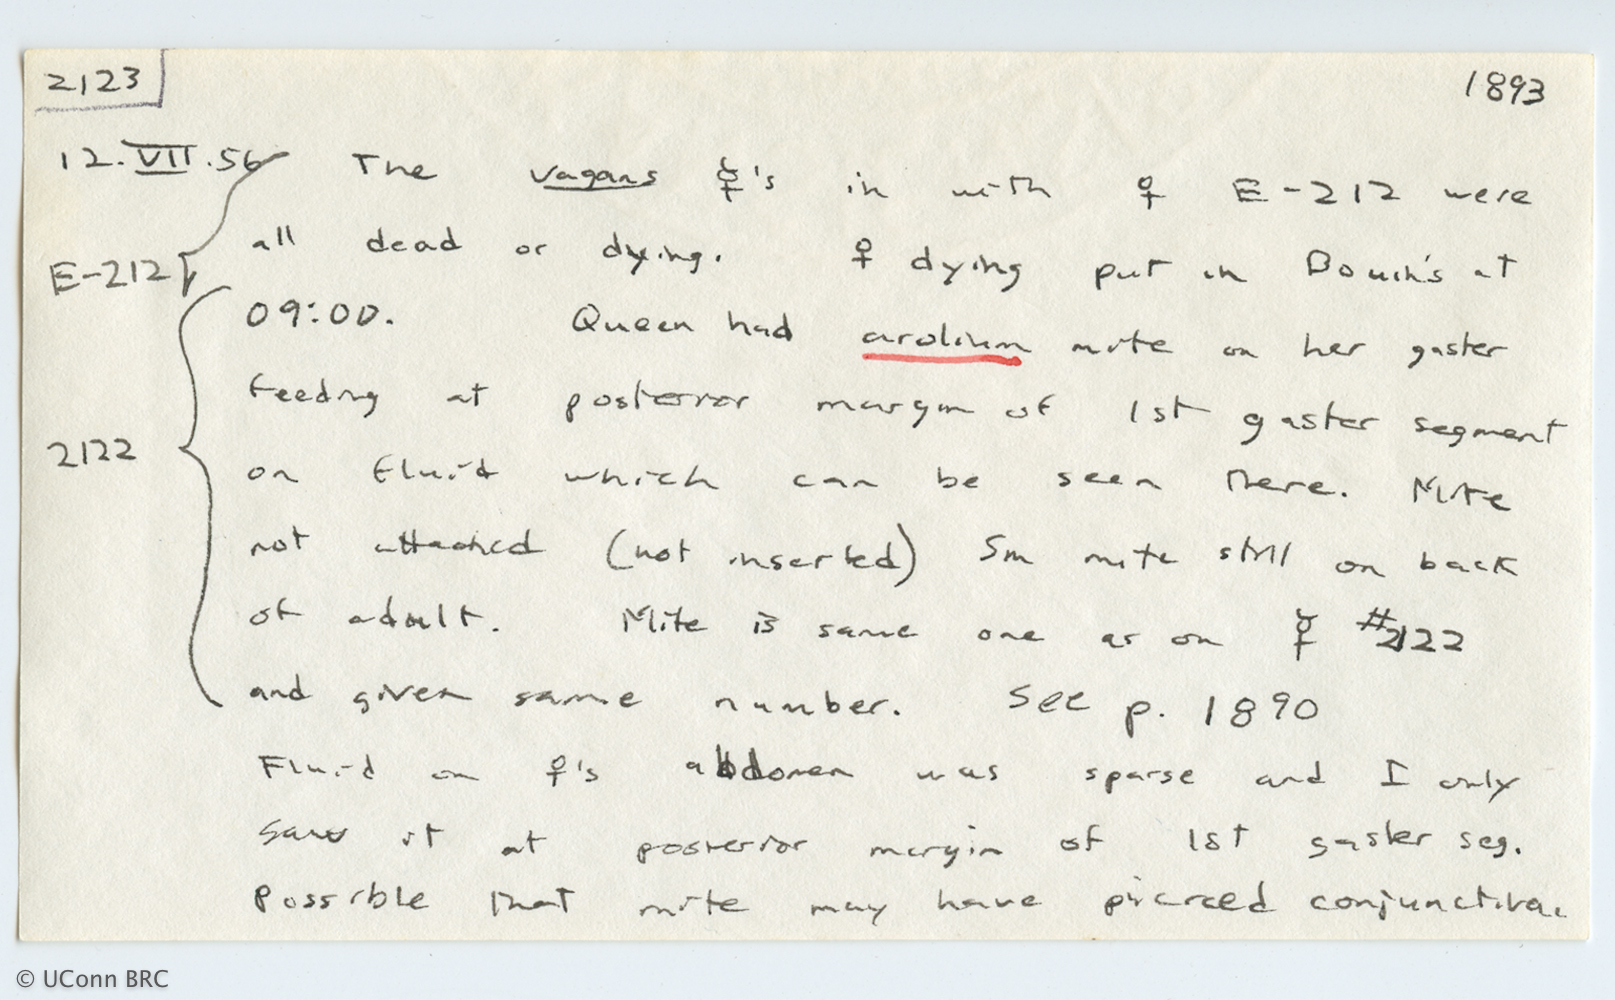 2123
1893
12.VII.56 The vagans ☿'s in with ♀ E-212 were
all dead or dying. ♀ dying put in Bouin's at
E-212
09:00. Queen had arolium mite on her gaster
feeding at posterior margin of 1st gaster segment
2122
on fluid which can be seen there. Mite
not attached (not inserted) Sm mite still on back
of adult. Mite is same one as on ☿ #2122
and given same number. See p. 1890
Fluid on ♀'s abdomen was sparse and I only
saw it at posterior margin of 1st gaster seg.
Possible that mite may have pierced conjunctiva.
© UConn BRC